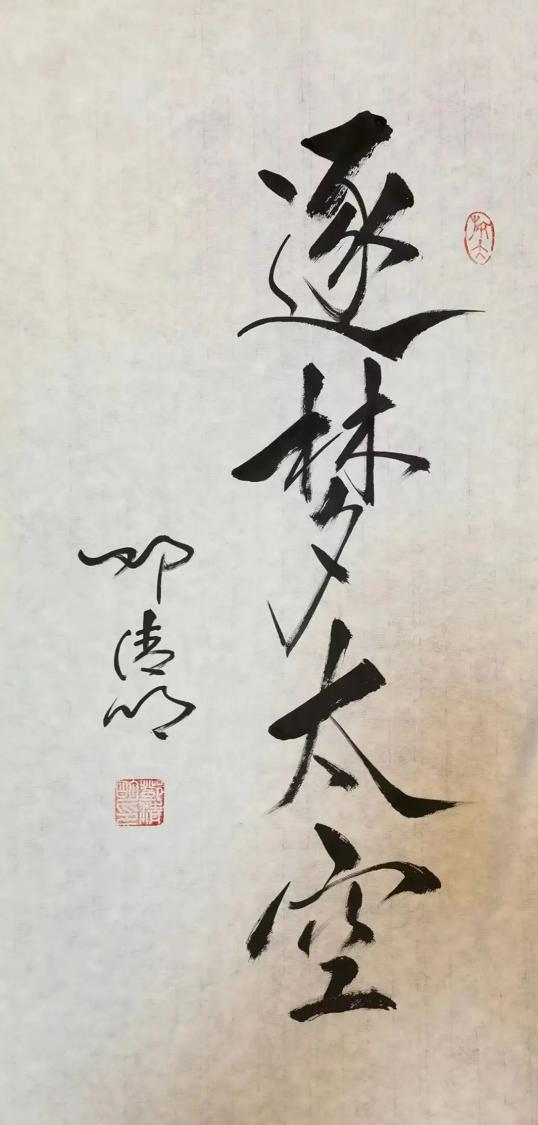 逐梦太空
邓清明